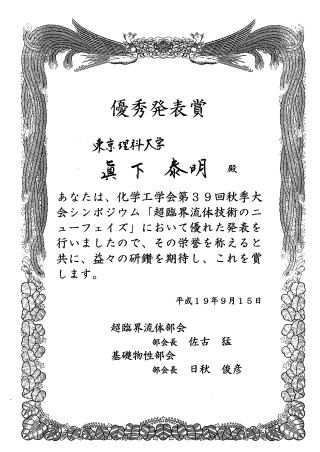 優秀発表賞
東京理科大学
眞下泰明 殿
あなたは、化学工学会第39回秋季大
会シンポジウム「超臨界流体技術のニ
ューフェイズ」において優れた発表を
行いましたので、その栄誉を称えると
共に、益々の研鑽を期待し、これを賞
します。
平成19年9月15日
超臨界流体部会
部会長 佐古 猛
基礎物性部会
部会長 日秋 俊彦